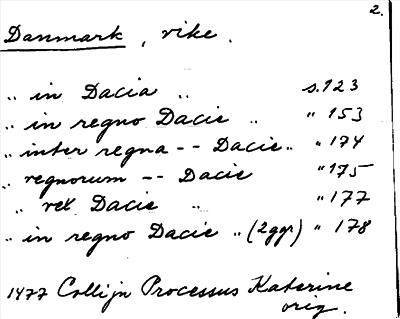 2.
Danmark, rike.
„ in Dacia „ s. 123
„ in regno Dacie „ " 153
„ inter regna -- Dacie „ " 174
„ regnorum -- Dacie " 175
„ rex Dacie „ " 177
„ in regno Dacie „ (2ggr) " 178
1477 Collijn Processus Katerine
orig.